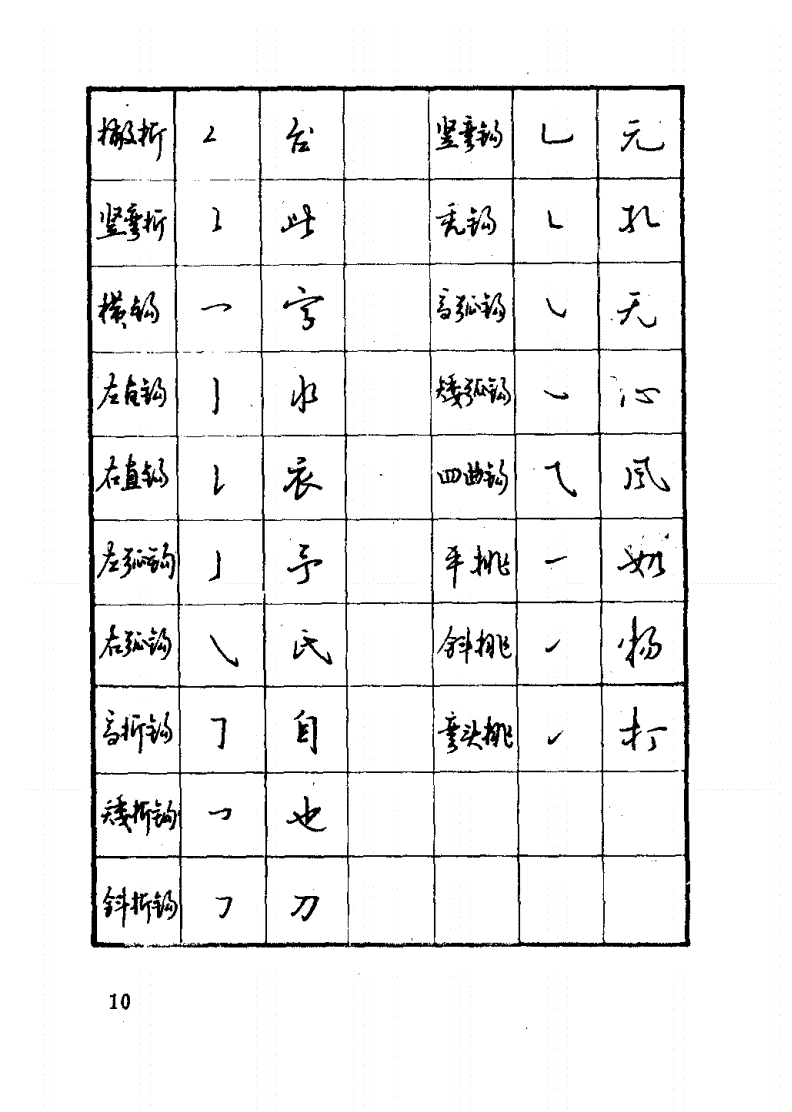 撇折 台 竖弯钩 乚 元
竖弯折 此 秃钩 乚 孔
横钩 乛 字 高弧钩 无
左直钩 亅 水 矮弧钩 心
右直钩 衣 四曲钩 乁 风
左弧钩 亅 予 平挑 如
右弧钩 氏 斜挑 物
高折钩 自 弯头挑 打
矮折钩 也
斜折钩 刀
10